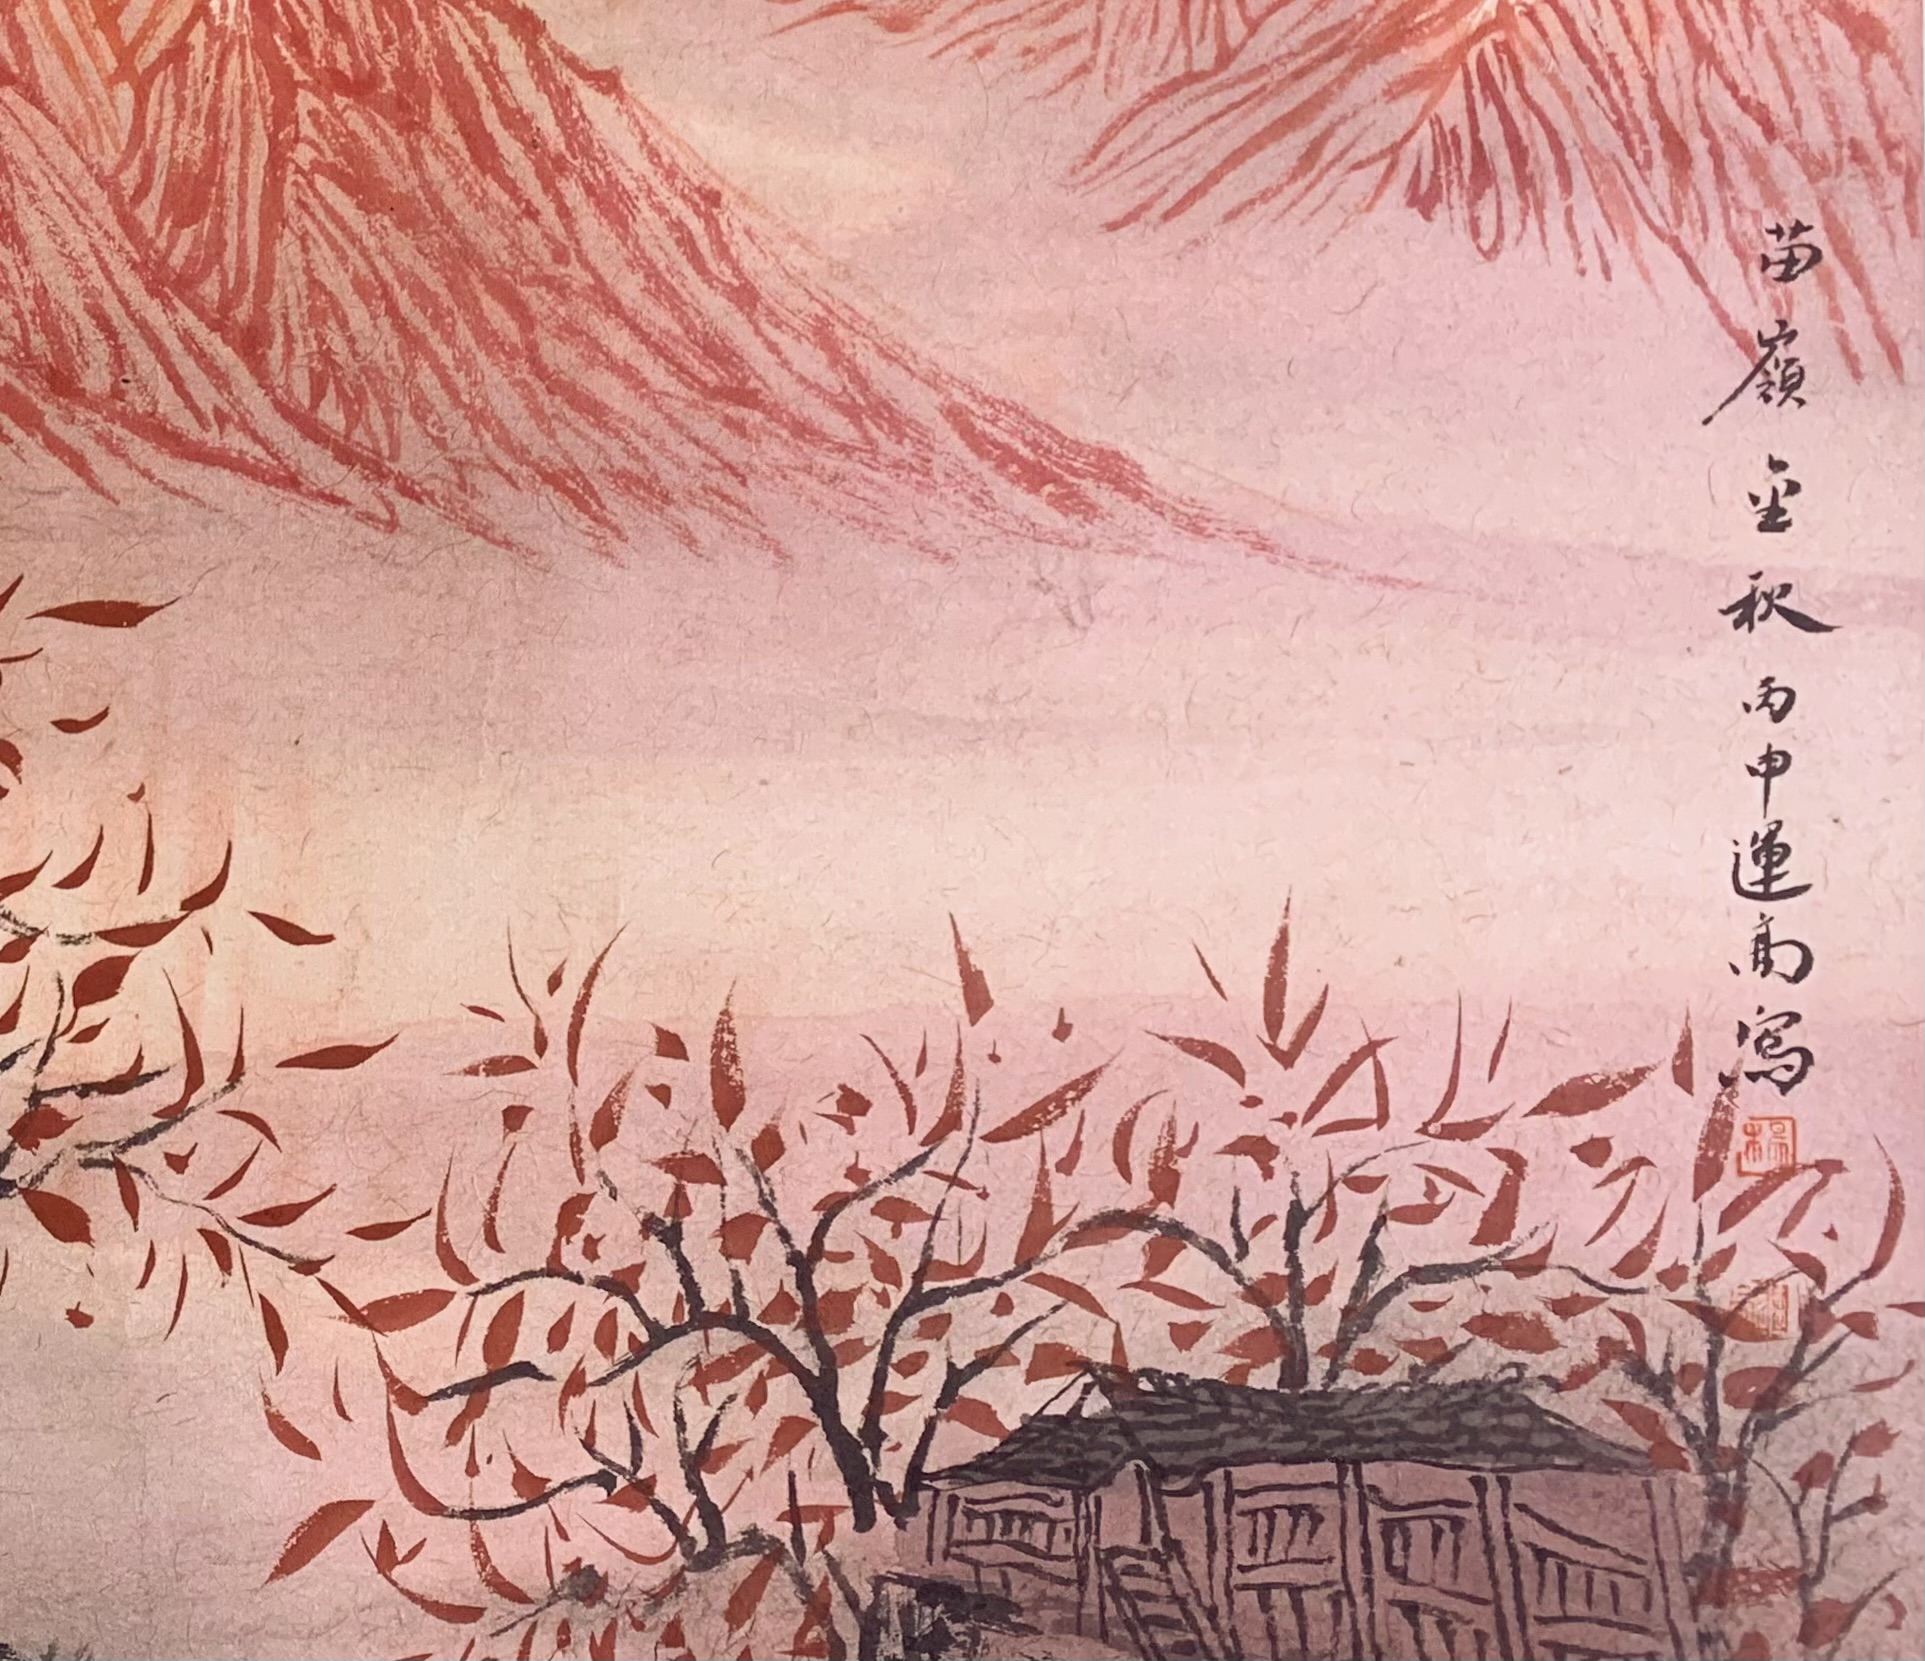 苗嶺金秋丙申運高寫
楊